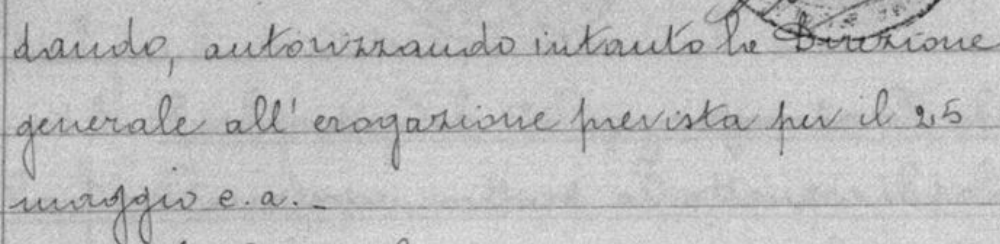 dando, autorizzando intanto la Direzione
generale all'erogazione prevista per il 25
maggio c.a._